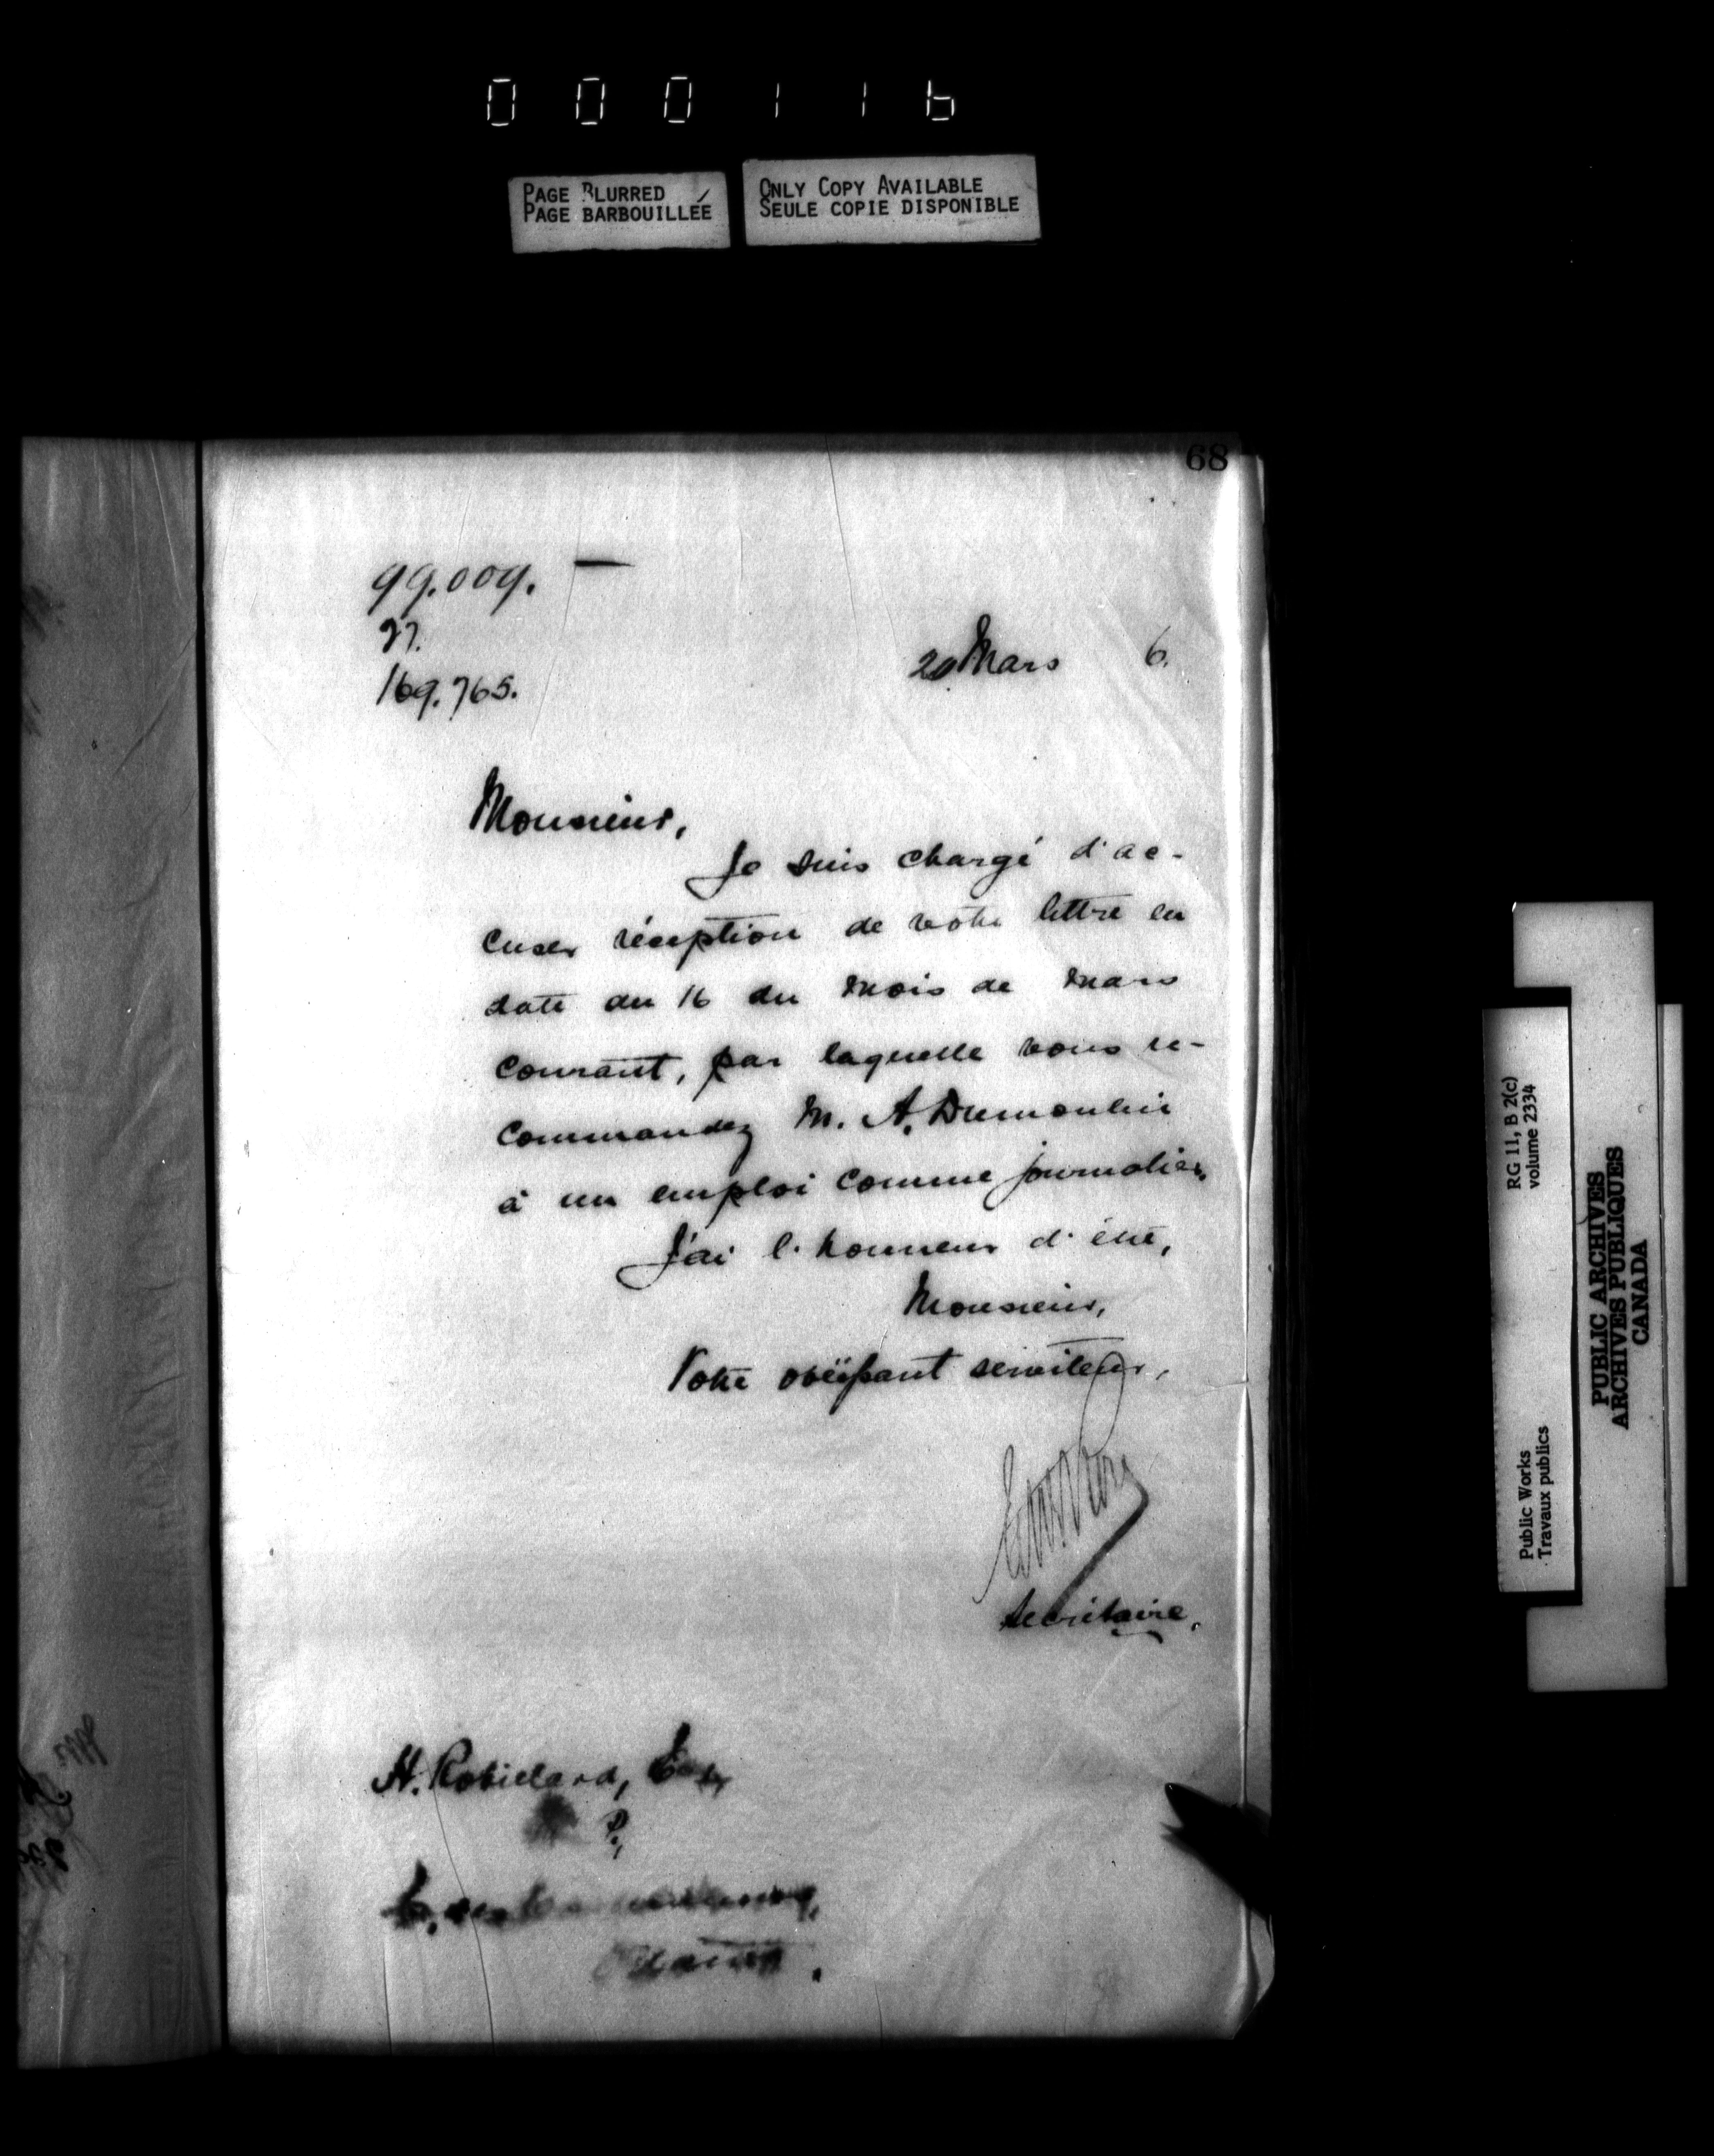 000116
PAGE BLURRED
PAGE BARBOUILLÉE
ONLY COPY AVAILABLE
SEULE COPIE DISPONIBLE
68
99.009. —
27.
169.765.
20 Mars 6.
Monsieur,
Je suis chargé d'ac-
cuser réception de votre lettre en
date du 16 du mois de Mars
courant, par laquelle vous re-
commandez M. A. Dumoulin
à un emploi comme journalier.
J'ai l'honneur d'être,
Monsieur,
Votre obéissant serviteur,
Secrétaire.
H. Robillard, Esq
P.,
Ottawa.
RG 11, B 2(c)
volume 2334
Public Works
Travaux publics
PUBLIC ARCHIVES
ARCHIVES PUBLIQUES
CANADA